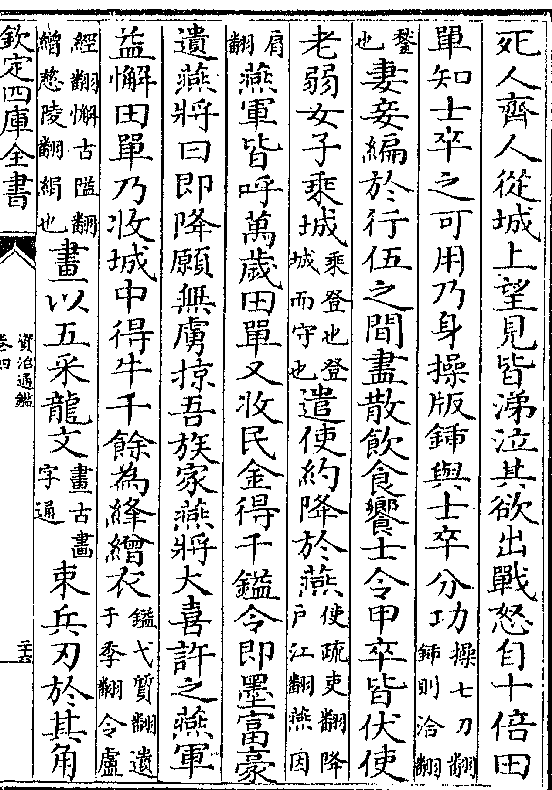 死人齊人從城上望見皆涕泣其欲出戰怒自十倍田
單知士卒之可用乃身操版鍤與士卒分功操七刀翻鍤則洽翻
鍫也妻妾編於行伍之間盡散飲食饗士令甲卒皆伏使
老弱女子乘城乘登也登城而守也遣使約降於燕使疏吏翻降戸江翻燕因
肩翻燕軍皆呼萬歲田單又收民金得千鎰令即墨富豪
遺燕將曰即降願無虜掠吾族家燕將大喜許之燕軍
益懈田單乃收城中得牛千餘為絳繒衣鎰弋質翻遺于季翻令盧
經翻懈古隘翻繒慈陵翻絹也畫以五采龍文畫古畵字通束兵刃於其角
欽定四庫全書
資治通鑑
卷四
二十六